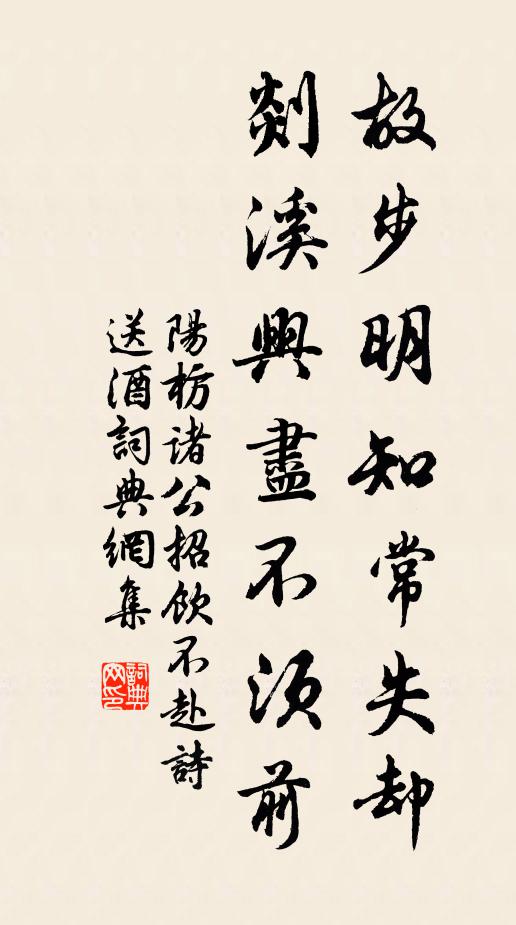 故步明知常失却
剡溪興盡不須前
陽枥诸公招飲不赴詩
送酒詞典網集
詞典
网印